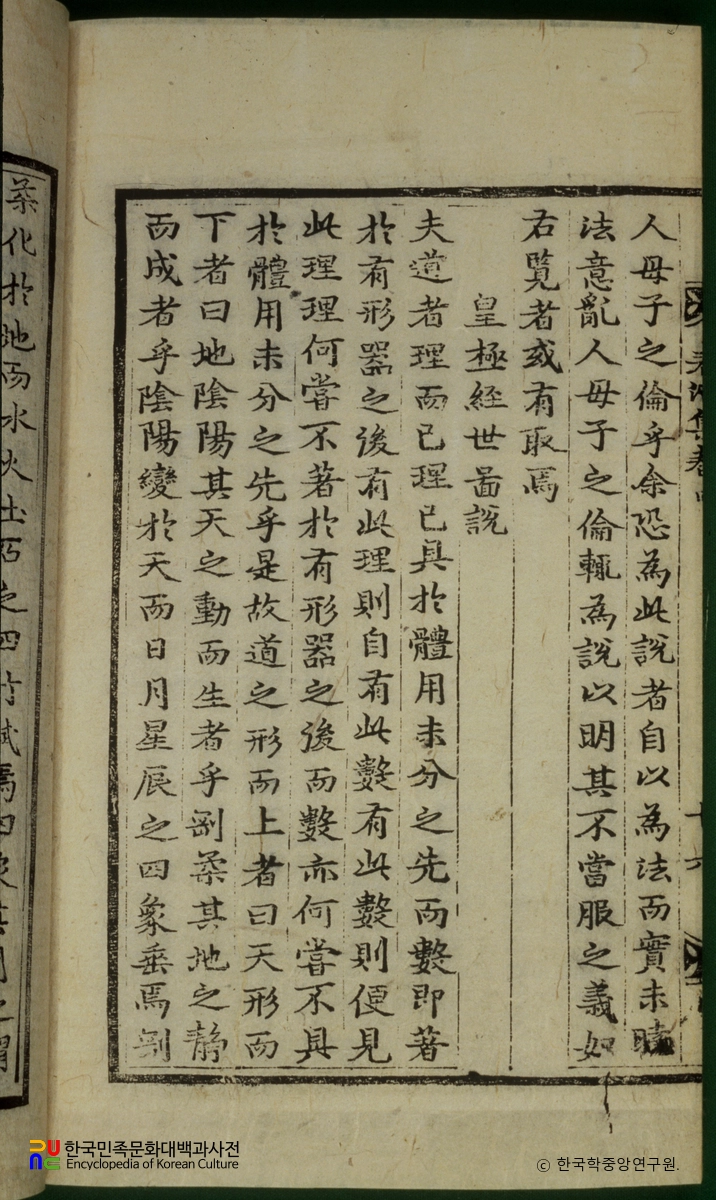 人母子之倫乎余恐為此說者自以為法而實未
法意亂人母子之倫輒為說以明其不當服之義如
右覽者或有取焉
皇極經世啚說
夫道者理而已理已具於體用未分之先而數即著
於有形器之後有此理則自有此數有此數則便見
此理理何嘗不著於有形器之後而數亦何嘗不具
於體用未分之先乎是故道之形而上者曰天形而
下者曰地陰陽其天之動而生者乎剛柔其地之靜
而成者乎陰陽變於天而日月星辰之四象垂焉剛
柔化於地而水火土石之四
한국민족문화대백과사전
Encyclopedia of Korean Culture
ⓒ 한국학중앙연구원.